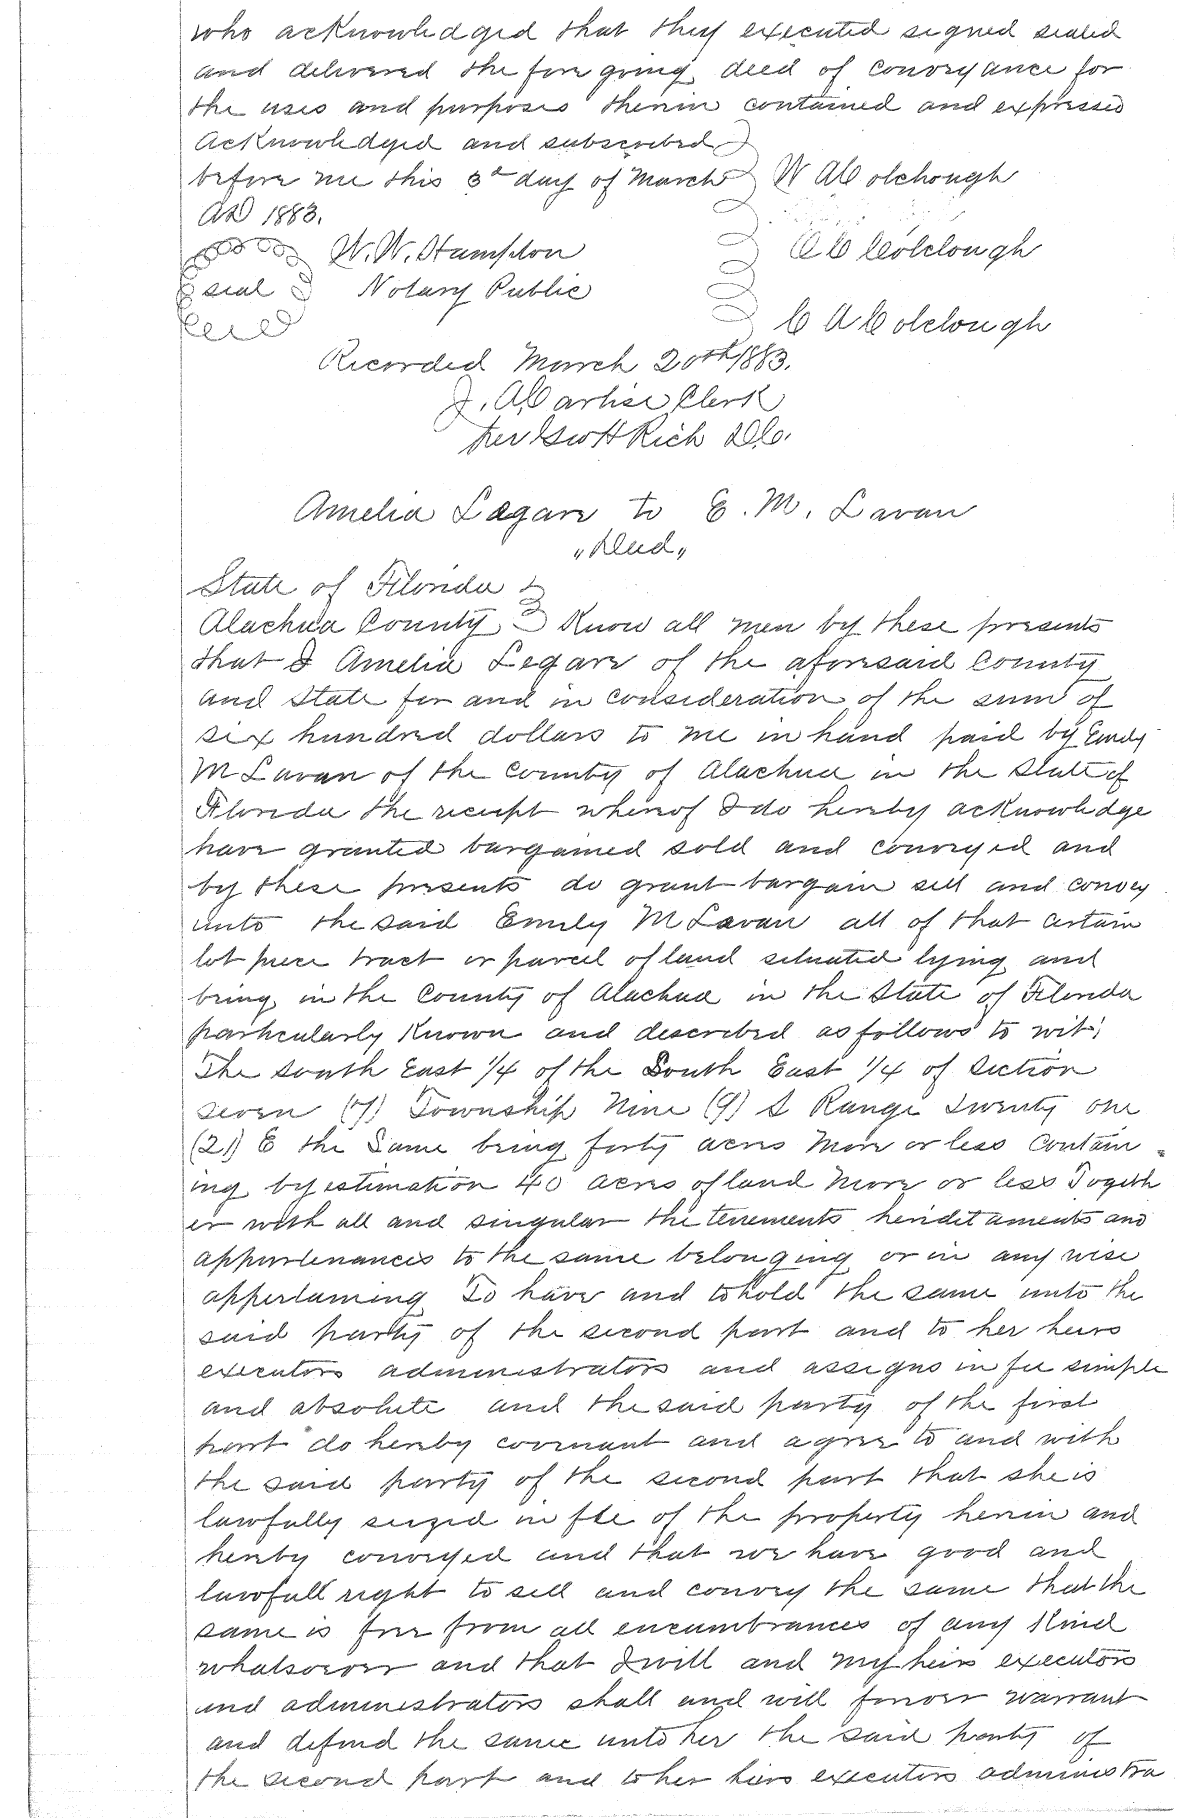 who acknowledged that they executed signed sealed
and delivered the foregoing deed of conveyance for
the uses and purposes therein contained and expressed
Acknowledged and subscribed
before me this 3d day of March W A Colclough
AD 1883.
W. W. Hampton C C Colclough
seal Notary Public
C A Colclough
Recorded March 20th 1883.
J. A Carlisle Clerk
per Rich D.C.
Amelia Legare to E. M. Lavan
"Deed"
State of Florida
Alachua County Know all men by these presents
that I Amelia Legare of the aforesaid County
and State for and in consideration of the sum of
six hundred dollars to me in hand paid by Emily
M Lavan of the County of Alachua in the State of
Florida the receipt whereof I do hereby acknowledge
have granted bargained sold and conveyed and
by these presents do grant bargain sell and convey
unto the said Emily M Lavan all of that certain
lot piece tract or parcel of land situated lying and
being in the County of Alachua in the State of Florida
particularly Known and described as follows to wit:
The South East 1/4 of the South East 1/4 of Section
seven (7) Township Nine (9) S Range Twenty one
(21) E the Same being forty acres more or less Contain-
ing by estimation 40 acres of land More or less Togeth
er with all and singular the tenements hereditaments and
appurtenances to the same belonging or in any wise
appertaining To have and to hold the same unto the
said party of the second part and to her heirs
executors administrators and assigns in fee simple
and absolute and the said party of the first
part do hereby covenant and agree to and with
the said party of the second part that she is
lawfully seized in fee of the property herein and
hereby conveyed and that we have good and
lawfull right to sell and convey the same that the
same is free from all encumbrances of any Kind
whatsoever and that I will and my heirs executors
and administrators shall and will forever warrant
and defend the same unto her the said party of
the second part and to her heirs executors administra